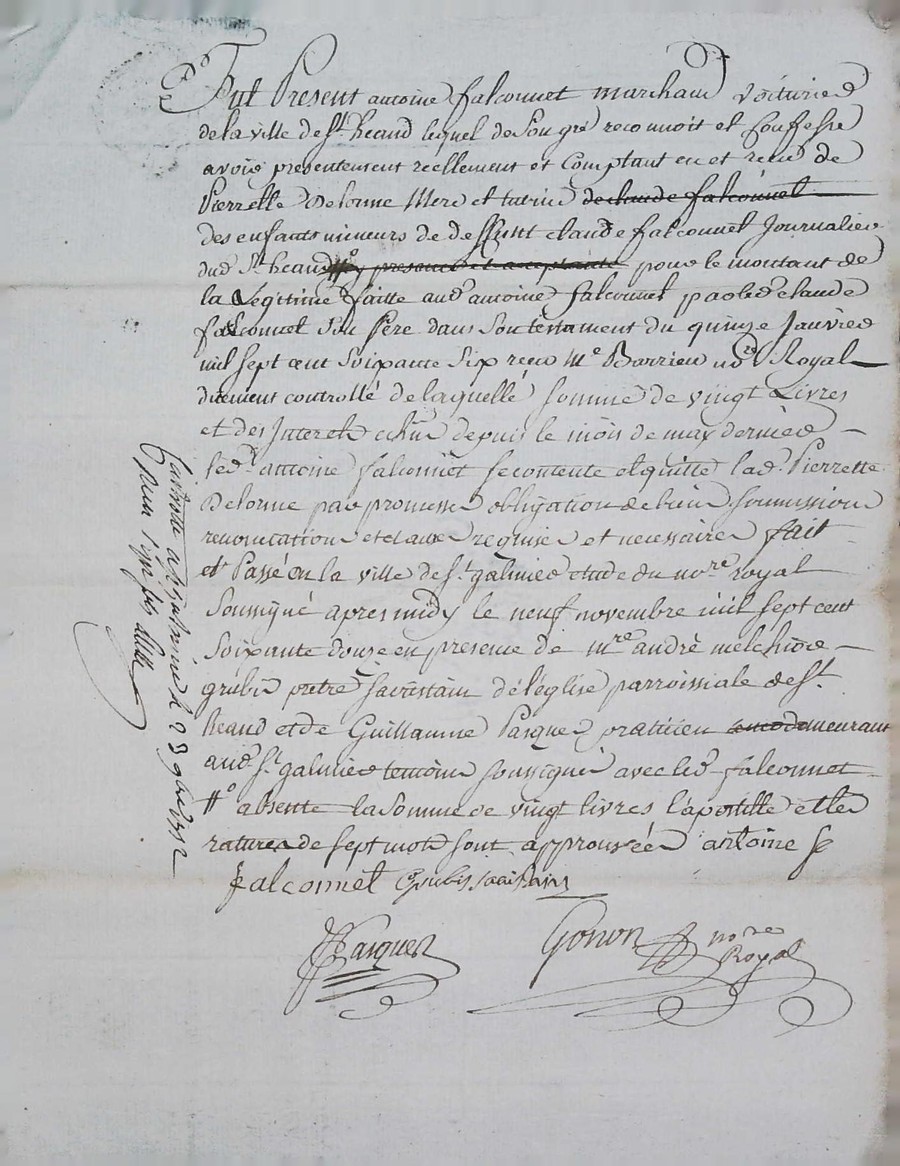 Fut Present antoine falconnet marchand voiturier
de la ville de St. heand lequel de Son gré reconnoit et Confesse
avoir presentement reellement et Comptant eu et receu de
Pierrette Delorme Mere et tutrice de claude falconnet
des enfants mineurs de deffunt claude falconnet Journalier
dud. St. heand #o y presente et acceptante pour le montant de
la Légitime faitte aud. antoine falconnet par led. claude
falconnet Son Pere dans Son testament du quinze Janvier
mil sept cent Soixante Six receu Me. Barrieu nore. Royal
duement controllé de laquelle somme de vingt Livres
et des Interets echus depuis le mois de may dernier
led. antoine falconnet se contente et quitte lad. Pierrette
Delorme par promesse obligation de biens soumissions
renonciations et clauses requises et necessaires fait
et Passé en la ville de St. galmier etude du nore. royal
Soussigné apres midy le neuf novembre mil sept cent
Soixante douze en presence de mre. andré melchior
grubis pretre sacristain de léglise parroissiale de St.
heand et de Guillaume Pasquer praticien demeurant
aud. St. galmier temoins soussignés avec led. falconnet
#o absente la Somme de vingt livres l'apostille et les
ratures de sept mots sont approuvées antoine
falconnet grubis sacristain
Pasquer Gonon nore
Royal
à St galmier le 23 9bre 1772